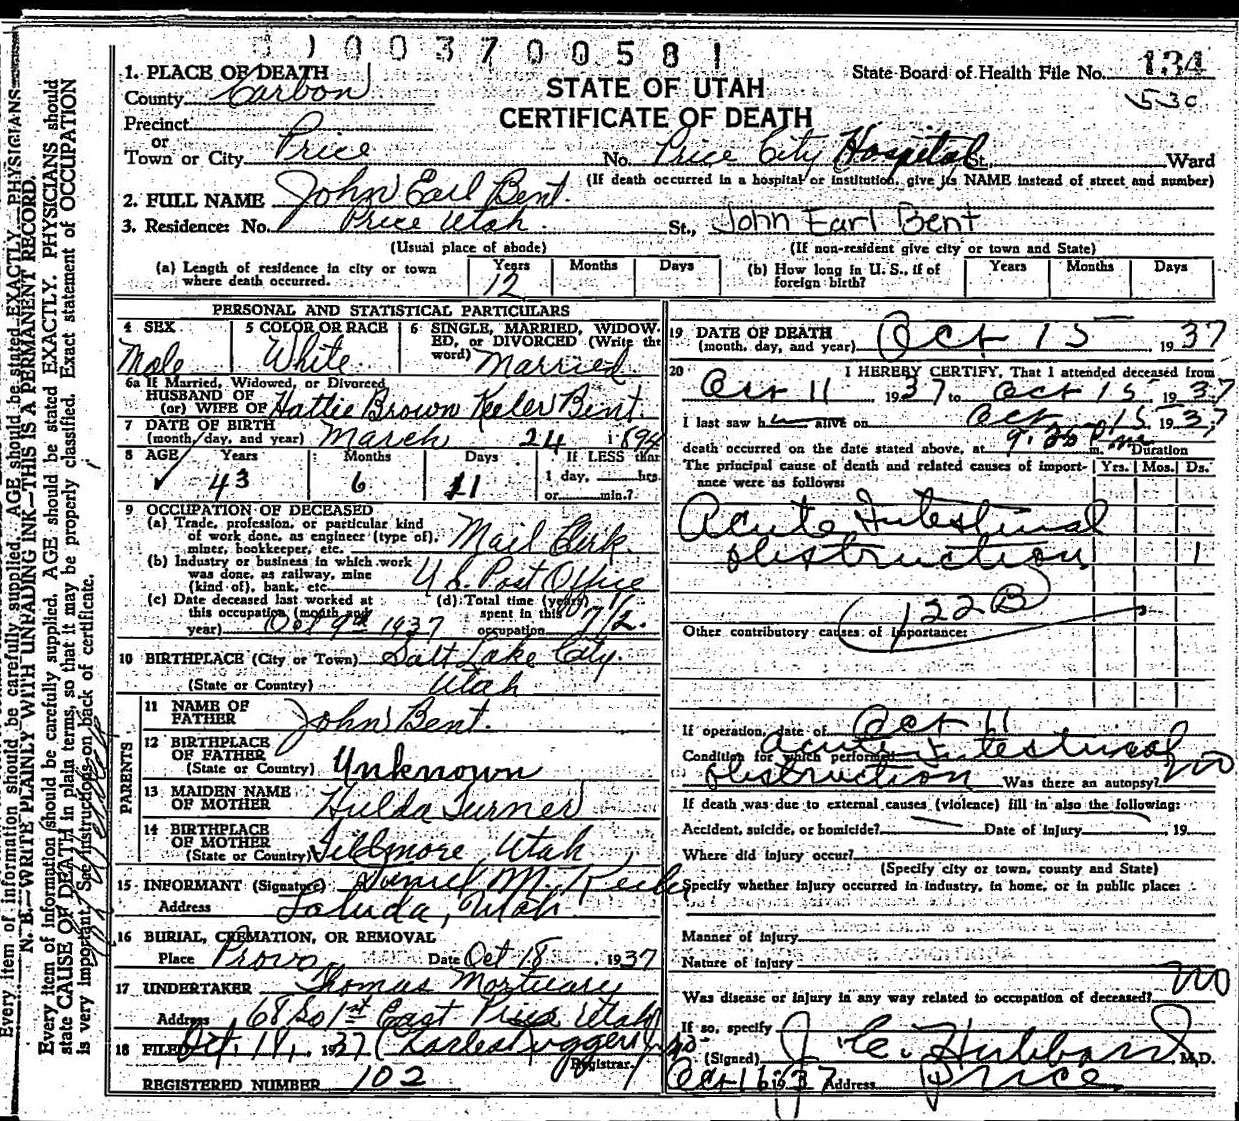 1003700581
1. PLACE OF DEATH
STATE OF UTAH
CERTIFICATE OF DEATH
State Board of Health File No. 134
530
County Carbon
Precinct
or
Town or City Price No. Price City Hospital St. Ward
(If death occurred in a hospital or institution, give its NAME instead of street and number)
2. FULL NAME John Earl Bent.
3. Residence: No. Price Utah. St., John Earl Bent
(Usual place of abode) (If non-resident give city or town and State)
(a) Length of residence in city or town where death occurred. Years 12 Months Days
(b) How long in U. S., if of foreign birth? Years Months Days
PERSONAL AND STATISTICAL PARTICULARS
4 SEX Male
5 COLOR OR RACE White
6 SINGLE, MARRIED, WIDOWED, or DIVORCED (Write the word) Married
6a If Married, Widowed, or Divorced
HUSBAND OF
(or) WIFE OF Hattie Brown Keeler Bent.
7 DATE OF BIRTH
(month, day, and year) March 24 1894
8 AGE Years 43 Months 6 Days 21 If LESS than 1 day, hrs. or min.?
9 OCCUPATION OF DECEASED
(a) Trade, profession, or particular kind
of work done, as engineer (type of),
miner, bookkeeper, etc. Mail Clerk.
(b) Industry or business in which work
was done, as railway, mine
(kind of), bank, etc. U.S. Post Office
(c) Date deceased last worked at
this occupation (month and
year) Oct 9th 1937
(d) Total time (years)
spent in this
occupation
10 BIRTHPLACE (City or Town) Salt Lake City.
(State or Country) Utah
PARENTS
11 NAME OF
FATHER John Bent.
12 BIRTHPLACE
OF FATHER
(State or Country) Unknown
13 MAIDEN NAME
OF MOTHER Hulda Turner
14 BIRTHPLACE
OF MOTHER
(State or Country) Fillmore, Utah
15 INFORMANT (Signature) Daniel M. Keeler
Address Utah
16 BURIAL, CREMATION, OR REMOVAL
Place Provo Date Oct 18 1937
17 UNDERTAKER Thomas Mortuary
Address 68 So 1st East Price Utah
18 FILED Oct. 1937
Registrar.
REGISTERED NUMBER 102
19 DATE OF DEATH
(month, day, and year) Oct 15 1937
20 I HEREBY CERTIFY, That I attended deceased from
Oct 11 1937 to Oct 15 1937
I last saw h alive on Oct 15 1937
death occurred on the date stated above, at m. Duration
The principal cause of death and related causes of importance were as follows: Yrs. Mos. Ds.
Acute Intestinal
obstruction 1
122B
Other contributory causes of importance:
If operation, date of Oct 11
Condition for which performed Acute Intestinal
obstruction Was there an autopsy? no
If death was due to external causes (violence) fill in also the following:
Accident, suicide, or homicide? Date of injury 19
Where did injury occur?
(Specify city or town, county and State)
Specify whether injury occurred in industry, in home, or in public place:
Manner of injury
Nature of injury
Was disease or injury in any way related to occupation of deceased? no
If so, specify
(Signed) J. E. Hubbard M.D.
Oct 16 1937 Address Price
N. B.—WRITE PLAINLY WITH UNFADING INK—THIS IS A PERMANENT RECORD.
Every item of information should be carefully supplied. AGE should be stated EXACTLY. PHYSICIANS should
state CAUSE OF DEATH in plain terms, so that it may be properly classified. Exact statement of OCCUPATION
is very important. See instructions on back of certificate.
Every item of information should be carefully supplied. AGE should be stated EXACTLY. PHYSICIANS